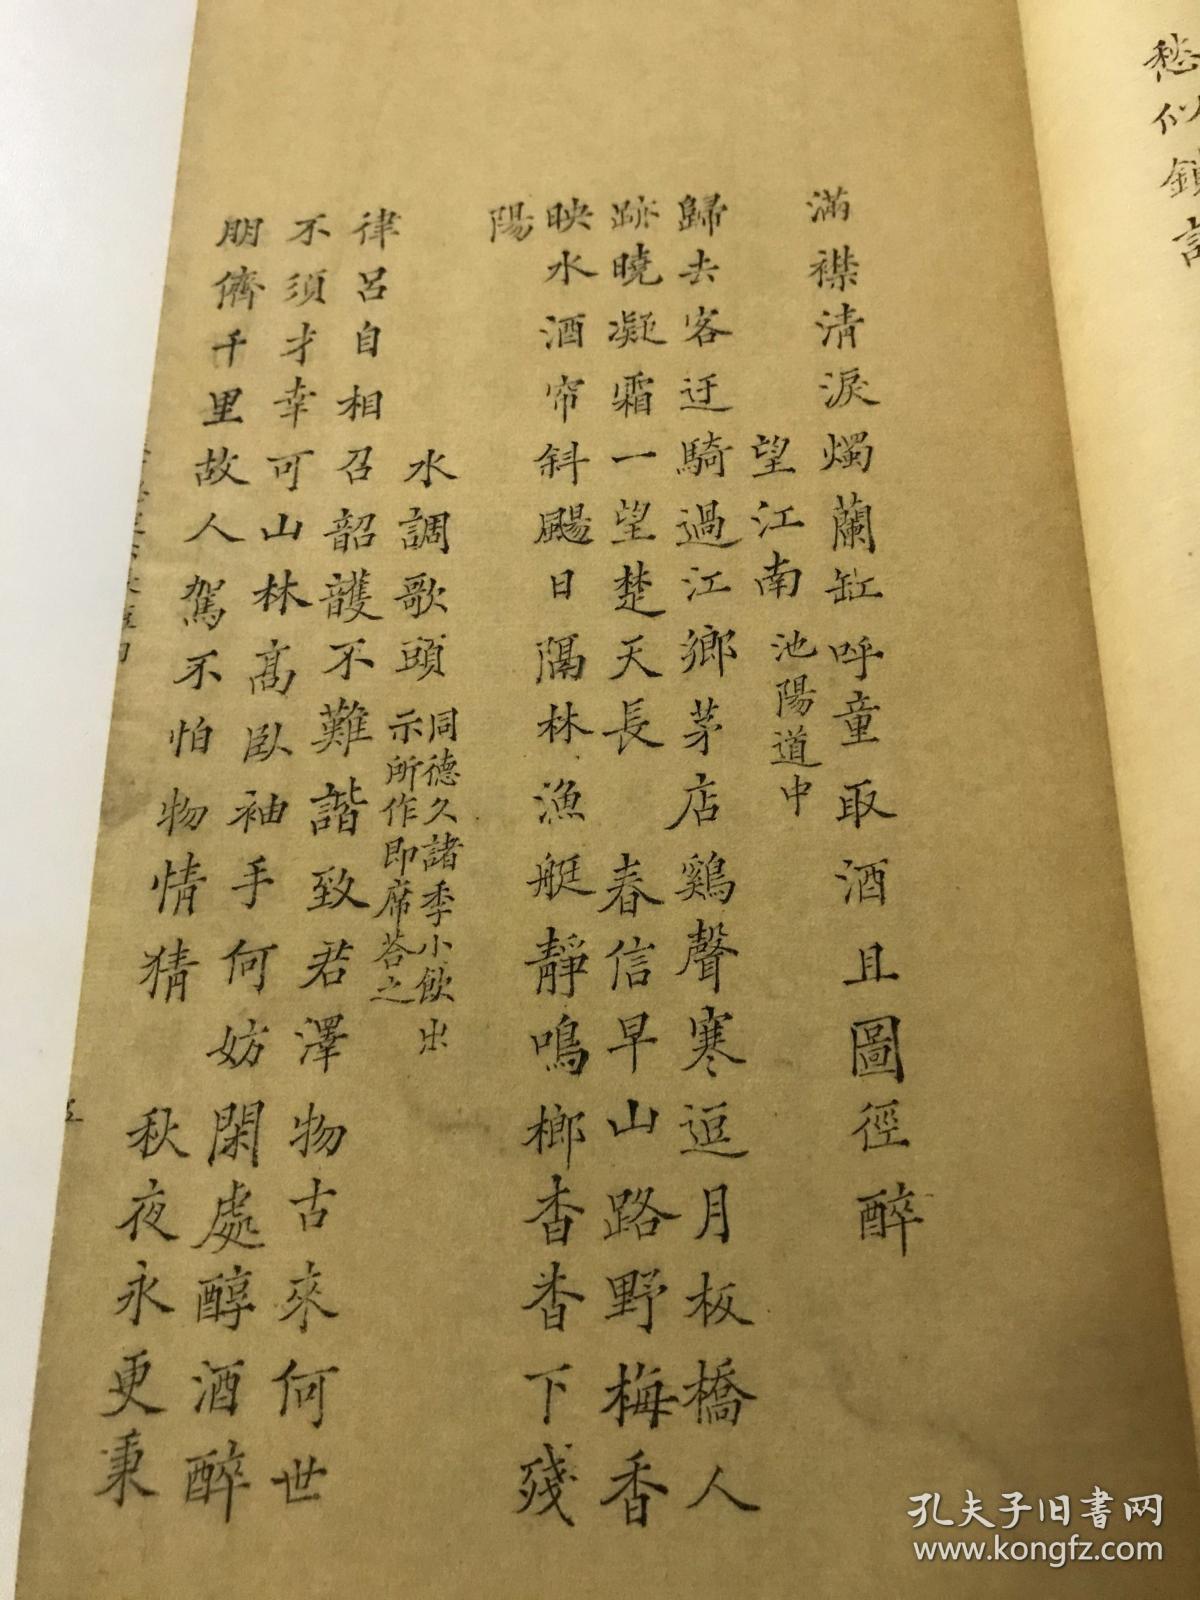 愁似鎖
滿襟清淚燭蘭缸呼童取酒且圖徑醉
望江南 池陽道中
歸去客迂騎過江鄉茅店鷄聲寒逗月板橋人
跡曉凝霜一望楚天長 春信早山路野梅香
映水酒帘斜颺日隔林漁艇靜鳴榔杳杳下殘
陽
水調歌頭 同德久諸季小飲出
示所作即席荅之
律呂自相召韶頀不難諧致君澤物古來何世
不須才幸可山林髙臥袖手何妨閑處醇酒醉
朋儕千里故人駕不怕物情猜 秋夜永更秉
五
孔夫子旧书网
www.kongfz.com